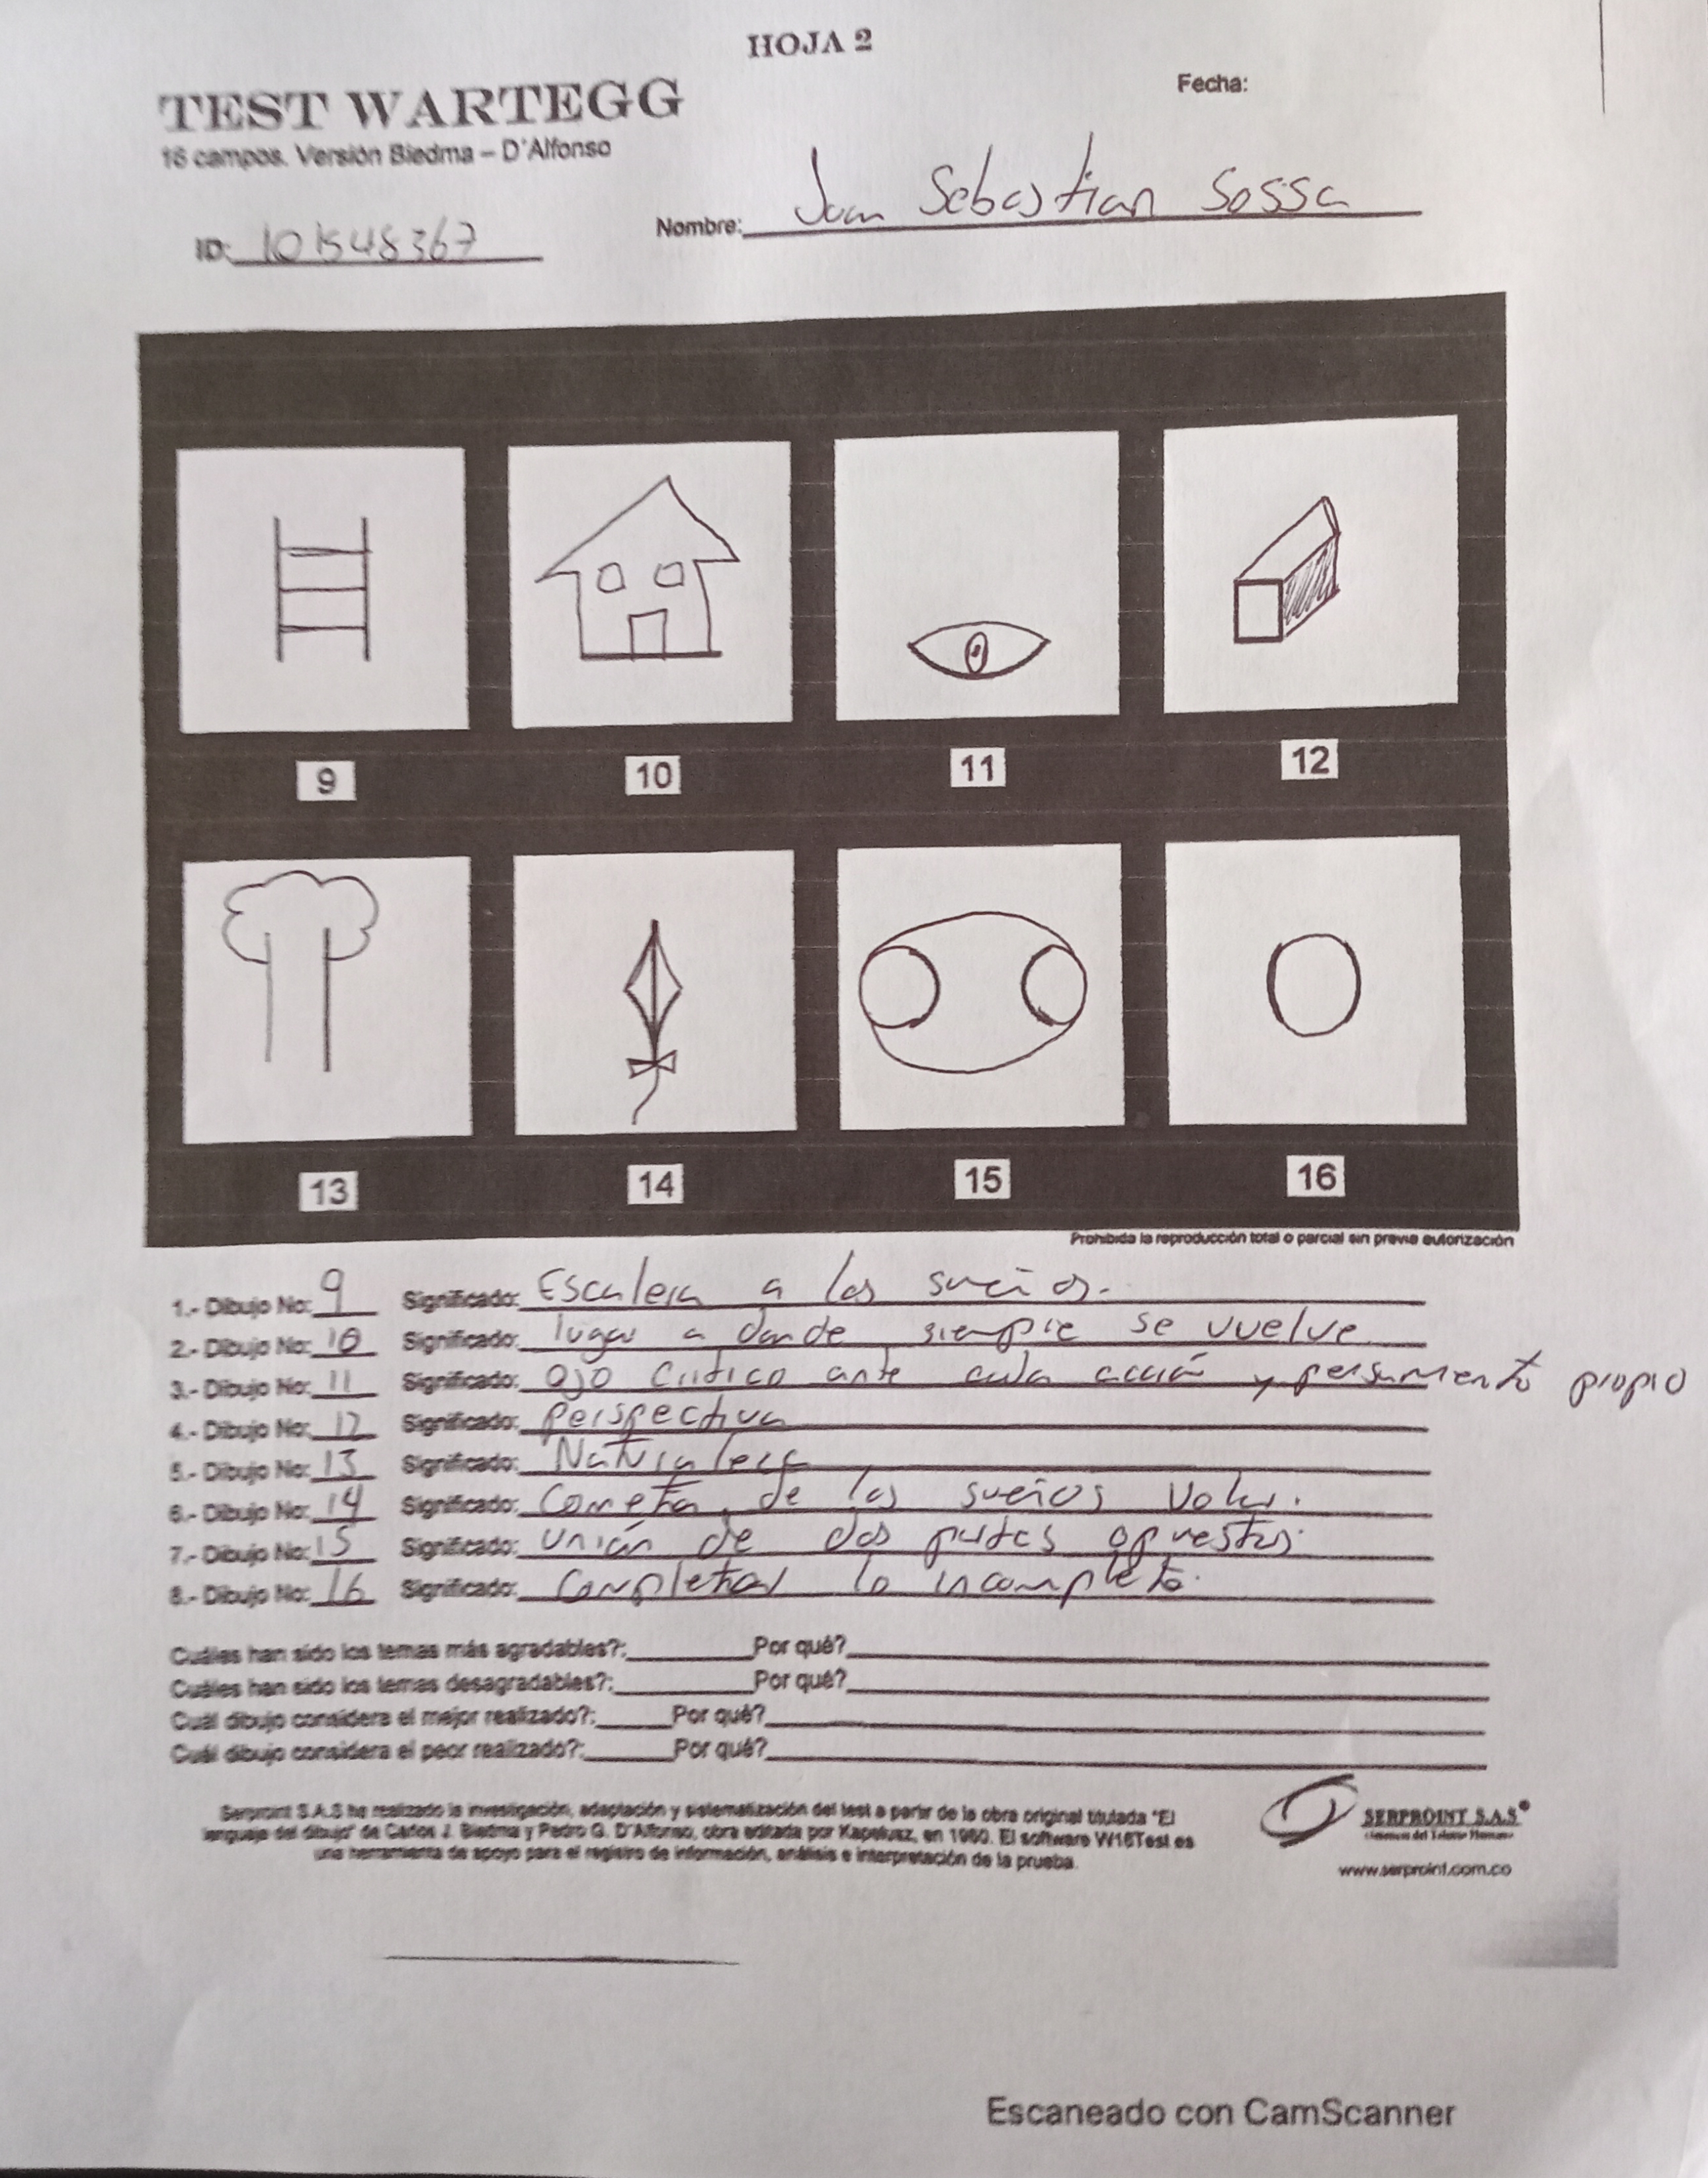 HOJA 2
TEST WARTEGG
Fecha:
16 campos. Versión Biedma – D'Alfonso
ID: 101548367
Nombre: Juan Sebastian Sossa
9
10
11
12
13
14
15
16
Prohibida la reproducción total o parcial sin previa autorización
1.- Dibujo No: 9 Significado: Escalera a los sueños.
2.- Dibujo No: 10 Significado: lugar a donde siempre se vuelve
3.- Dibujo No: 11 Significado: Ojo Critico ante cada acción y pensamiento propio
4.- Dibujo No: 12 Significado: perspectiva
5.- Dibujo No: 13 Significado: Naturaleza
6.- Dibujo No: 14 Significado: Cometa, de los sueños Volar.
7.- Dibujo No: 15 Significado: unión de dos partes opuestas.
8.- Dibujo No: 16 Significado: Completar lo incompleto.
Cuáles han sido los temas más agradables?: Por qué?
Cuáles han sido los temas desagradables?: Por qué?
Cuál dibujo considera el mejor realizado?: Por qué?
Cuál dibujo considera el peor realizado?: Por qué?
Serproint S.A.S ha realizado la investigación, adaptación y sistematización del test a partir de la obra original titulada "El
lenguaje del dibujo" de Carlos J. Biedma y Pedro G. D'Alfonso, obra editada por Kapelusz, en 1960. El software W16Test es
una herramienta de apoyo para el registro de información, análisis e interpretación de la prueba.
SERPROINT S.A.S
del Talento Humano
www.serproint.com.co
Escaneado con CamScanner